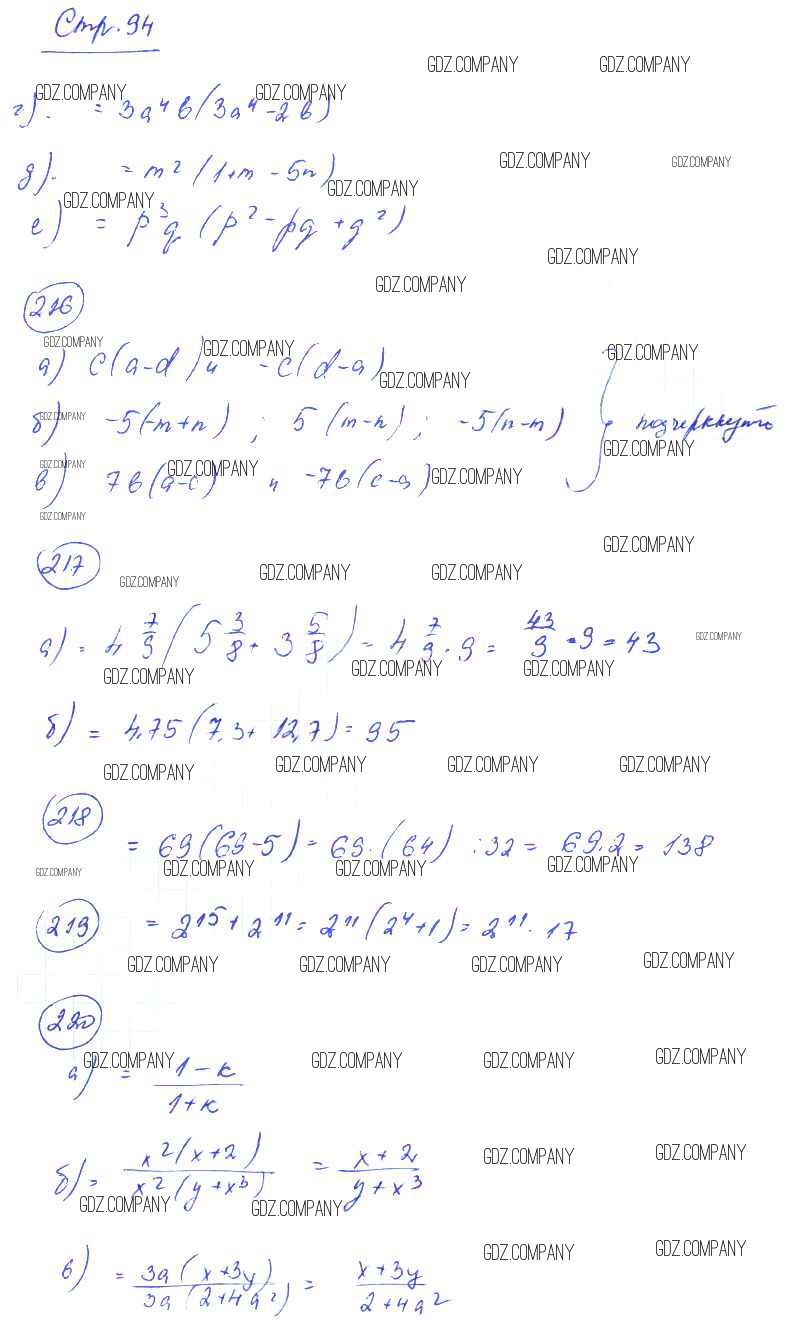 Стр. 94
GDZ.COMPANY GDZ.COMPANY
GDZ.COMPANY GDZ.COMPANY
г). = 3a⁴b(3a⁴-2b)
GDZ.COMPANY GDZ.COMPANY
д). = m²(1+m-5n)
GDZ.COMPANY GDZ.COMPANY
е) = p³q(p²-pq+q²)
GDZ.COMPANY
GDZ.COMPANY
216
GDZ.COMPANY GDZ.COMPANY GDZ.COMPANY
а) c(a-d) и -c(d-a)
GDZ.COMPANY
GDZ.COMPANY
б) -5(-m+n); 5(m-n); -5(n-m) } подчеркнуть
GDZ.COMPANY
GDZ.COMPANY GDZ.COMPANY GDZ.COMPANY
в) 7b(a-c) и -7b(c-a)
GDZ.COMPANY
GDZ.COMPANY
217
GDZ.COMPANY GDZ.COMPANY GDZ.COMPANY
а) = 4 7/9 (5 3/8 + 3 5/8) = 4 7/9 · 9 = 43/9 · 9 = 43
GDZ.COMPANY
GDZ.COMPANY GDZ.COMPANY GDZ.COMPANY
б) = 4,75(7,3+12,7) = 95
GDZ.COMPANY GDZ.COMPANY GDZ.COMPANY GDZ.COMPANY
218
= 69(69-5) = 69·(64) :32 = 69·2 = 138
GDZ.COMPANY GDZ.COMPANY GDZ.COMPANY GDZ.COMPANY
219 = 2¹⁵+2¹¹ = 2¹¹(2⁴+1) = 2¹¹·17
GDZ.COMPANY GDZ.COMPANY GDZ.COMPANY GDZ.COMPANY
220
GDZ.COMPANY GDZ.COMPANY GDZ.COMPANY GDZ.COMPANY
а) = 1-к / 1+к
б) = x²(x+2) / x²(y+x³) = x+2 / y+x³
GDZ.COMPANY GDZ.COMPANY
GDZ.COMPANY GDZ.COMPANY
GDZ.COMPANY GDZ.COMPANY
в) = 3a(x+3y) / 3a(2+4a²) = x+3y / 2+4a²